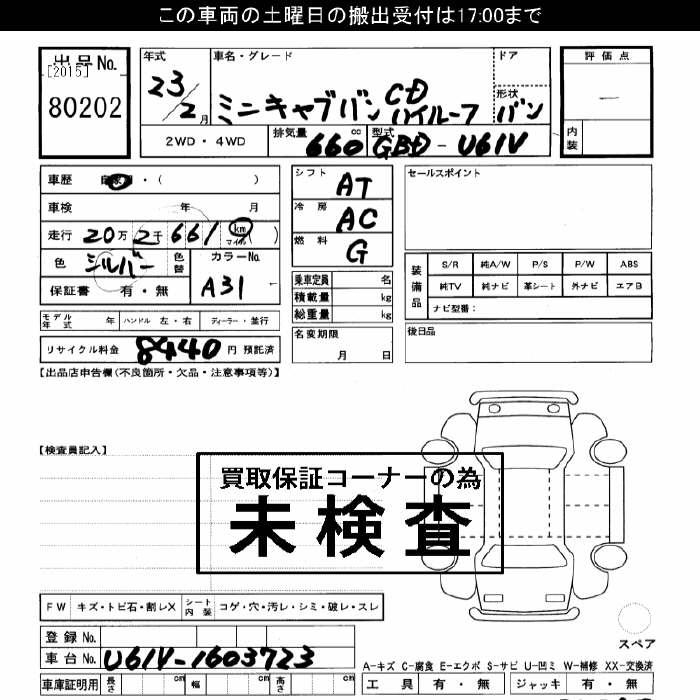 この車両の土曜日の搬出受付は17:00まで
出品No.
[2015]
80202
年式
23/2月
車名・グレード
ミニキャブバン CD ハイルーフ
ドア
形状
バン
評価点
―
内装
2WD・4WD
排気量 660 cc
型式 GBD-U61V
車歴 自家用・( )
車検 年 月
走行 20万2千661 km マイル )
色 シルバー 色替
カラーNo. A31
保証書 有・無
シフト AT
冷房 AC
燃料 G
セールスポイント
装備品
S/R 純A/W P/S P/W ABS
純TV 純ナビ 革シート 外ナビ エアB
ナビ型番:
乗車定員 名
積載量 kg
総重量 kg
モデル年式 年 ハンドル 左・右 ディーラー・並行
名変期限
月 日
後日品
リサイクル料金 8440 円 預託済
【出品店申告欄(不良箇所・欠品・注意事項等)】
【検査員記入】
買取保証コーナーの為
未検査
FW キズ・トビ石・割レX シート内装 コゲ・穴・汚レ・シミ・破レ・スレ
登録No.
車台No. U61V-1603723
スペア
A-キズ C-腐食 E-エクボ S-サビ U-凹ミ W-補修 XX-交換済
車庫証明用 長さ cm 幅 cm 高さ cm
工具 有・無 ジャッキ 有・無